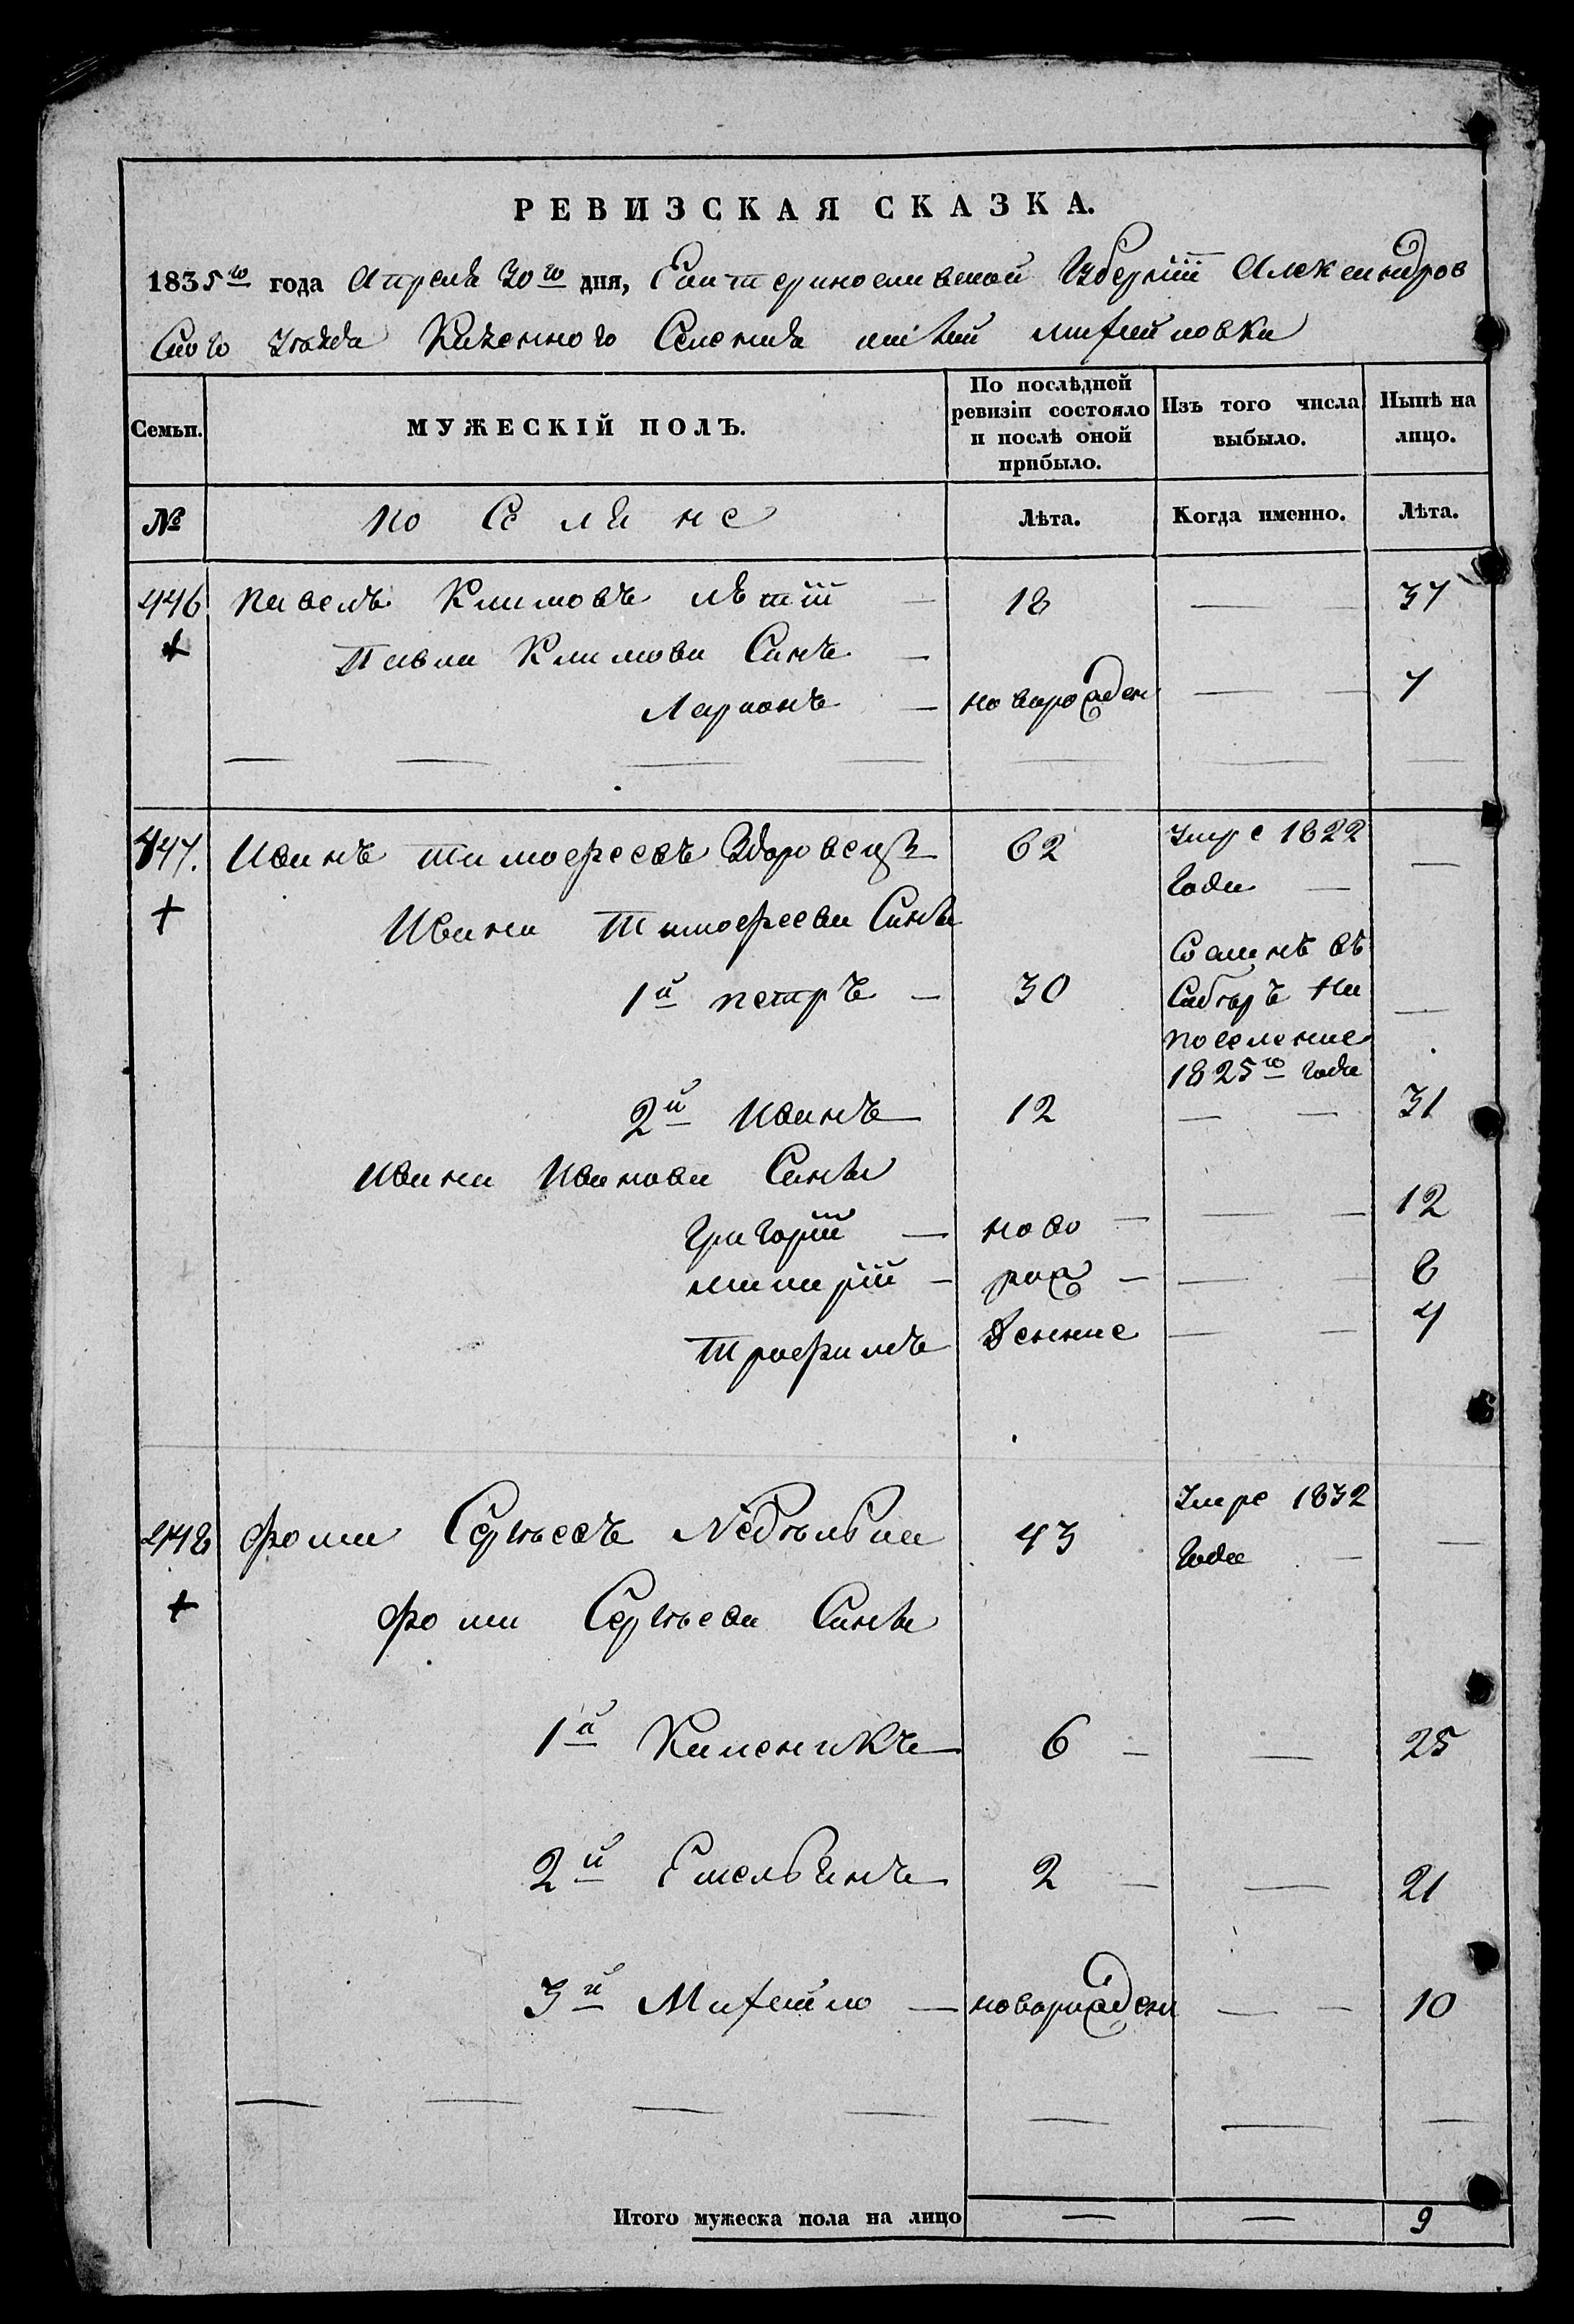 РЕВИЗСКАЯ СКАЗКА.
1835го года Апреля 30го дня, Екатеринославской Губернии Александров
Ского уезда Казенного Селения Михайловки
Семьи. МУЖЕСКІЙ ПОЛЪ. По послѣдней ревизіи состояло и послѣ оной прибыло. Изъ того числа выбыло. Нынѣ на лицо.
№ поселяне Лѣта. Когда именно. Лѣта.
446 Павелъ Климовъ — 18 — — 37
+ Павла Климова Синъ —
Ларионъ — новорожден — — 7
447. Иванъ Тимофеевъ Здоровецъ 62 Умре 1822 Года — —
+ Ивана Тимофеева Сины
1й петръ — 30 Сосланъ въ Сибѣръ На поселение 1825го Года —
2й Иванъ — 12 — — 31
Ивана Иванова Сины
Григорий — ново — — — 12
— рож — — — 8
Трофимъ дение — — 4
448 Фома Сергѣевъ 43 Умре 1832 Года — —
+ Фоми Сергѣева Сины
1й Каленикъ — 6 — — 25
2й Емельянъ — 2 — — 21
3й Михайло — новорожден — — 10
Итого мужеска пола на лицо — — 9